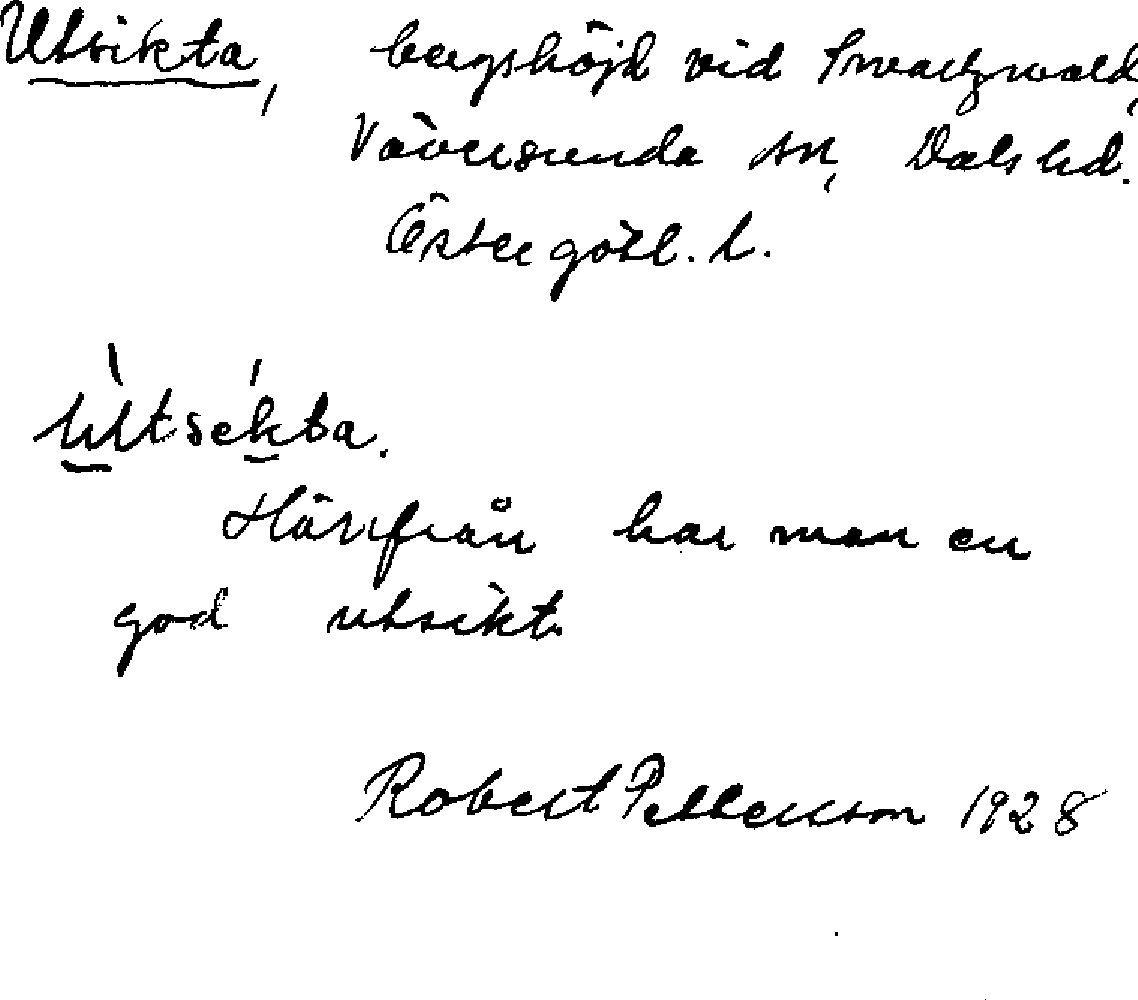 Utsikta, bergshöjd vid Swartzwald,
Väversunda sn, Dals hd.
Östergötl. l.
Utsekta.
Härifrån har man en
god utsikt.
Robert Pettersson 1928